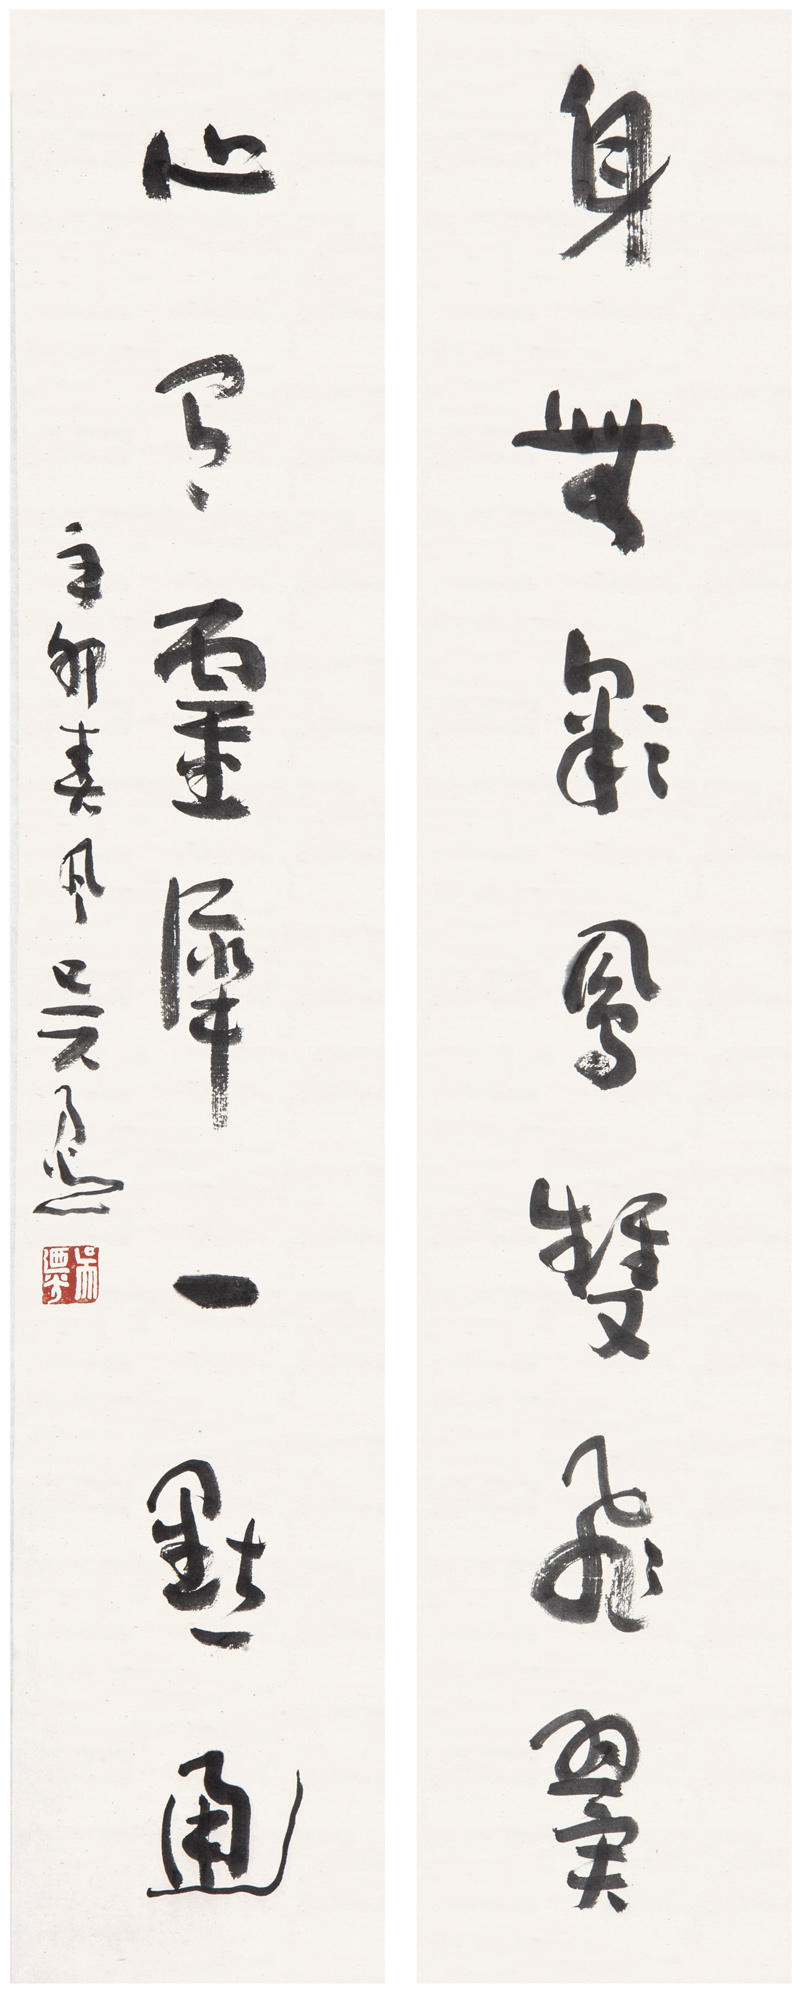 身無彩鳳雙飛翼
心有靈犀一點通
辛卯春月吳